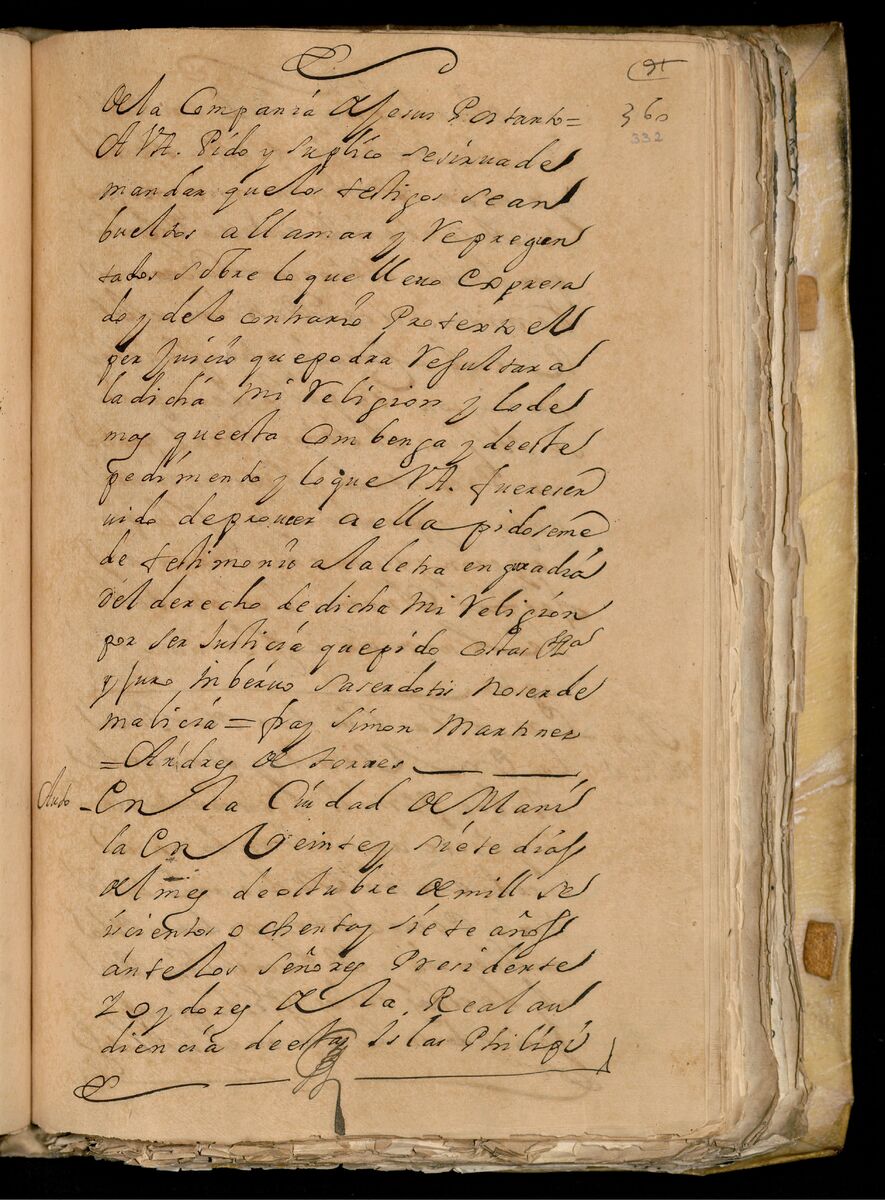 91
360
332
de la Compania de Jesus Por tanto=
A VA. Pido y suplico se sirua de
mandar que los testigos sean
bueltos a llamar y Repregun
tados sobre lo que lleuo expresa
do y de lo contrario Protexto el
perjuicio que podra Resultar a
la dicha mi Religion y lo de
mas que esta combenga y de este
pedimento y lo que VA. fuere ser
uido de proueer a ella pido se me
de testimonio a la letra en guarda
del derecho de dicha mi Religion
por ser Justicia que pido costas
y Juro in beruo saserdotis no ser de
malicia = fray Simon Martinez
=Andres de torres
Auto
En la Ciudad de Mani
la En Veinte y siete dias
del mes de octubre de mill se
iscientos ochenta y siete años
ante los señores Presidente
Y oydores de la Real au
diencia de estas Islas Philipi